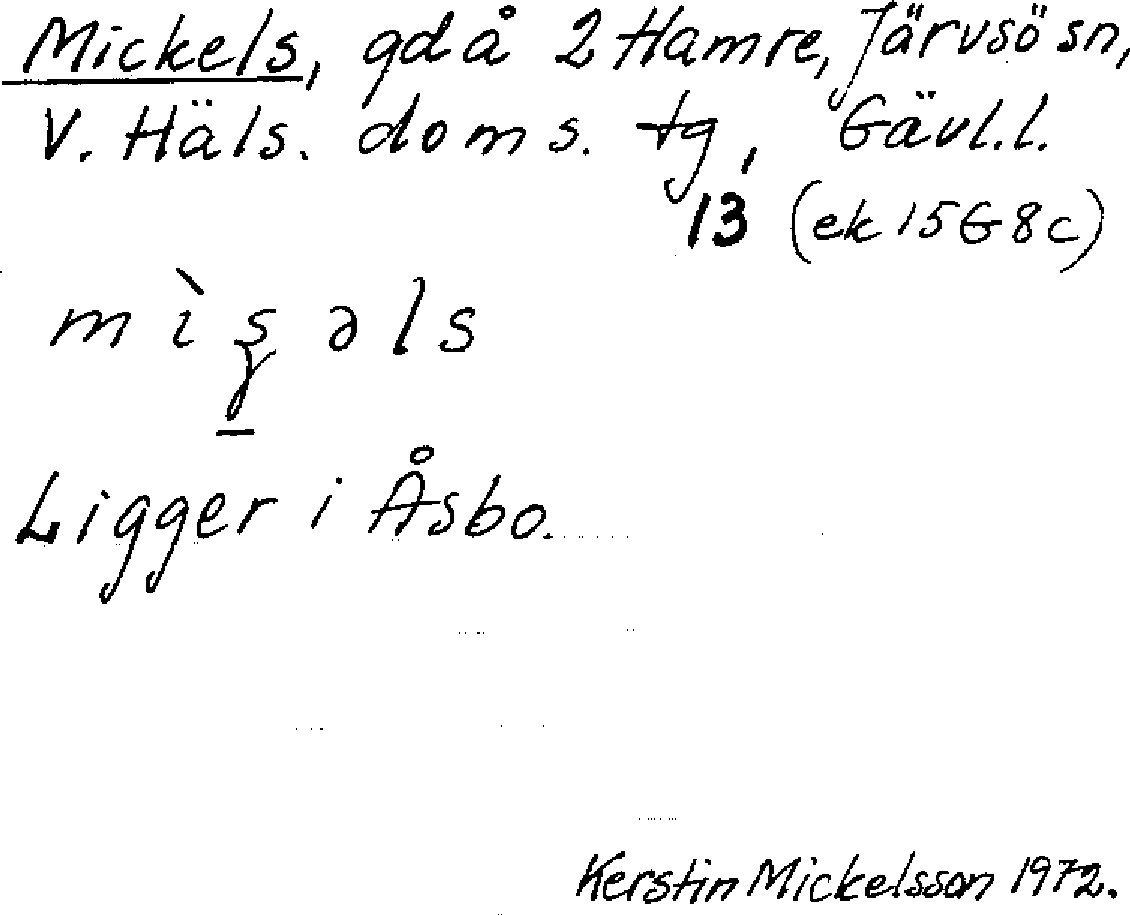 Mickels, gd å 2 Hamre, Järvsö sn,
V. Häls. doms. tg, Gävl.l.
13 (ek 15G 8c)
Ligger i Åsbo.
Kerstin Mickelsson 1972.